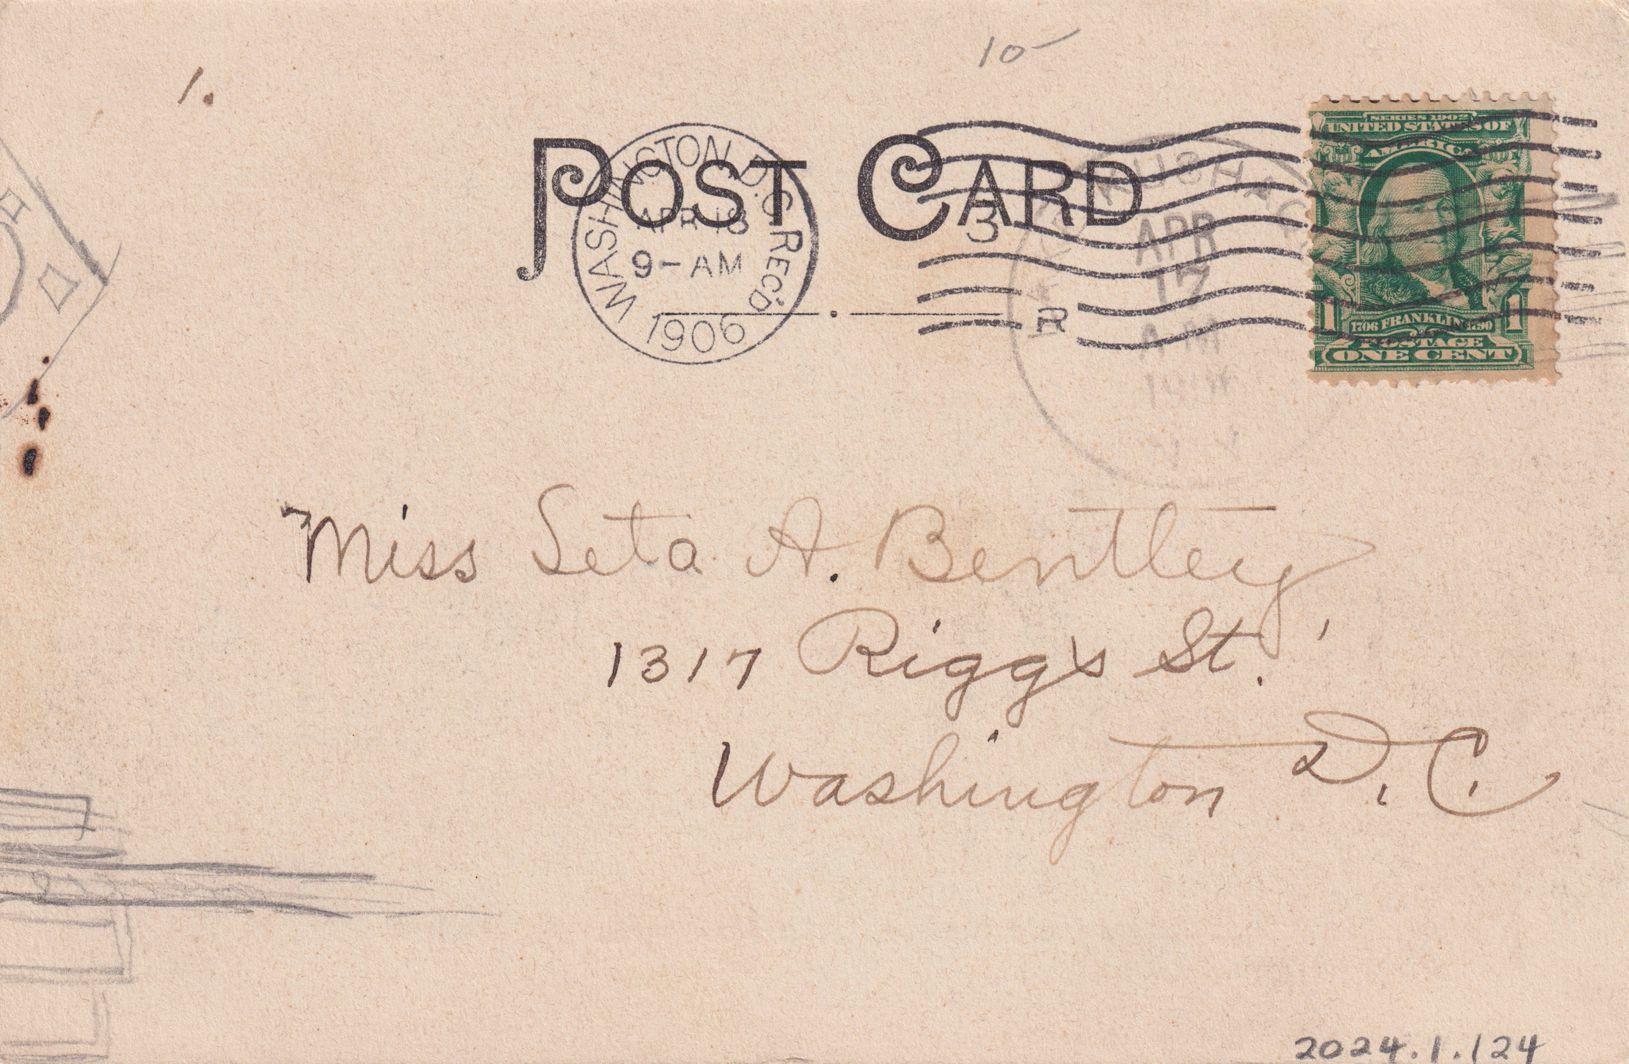 1.
10-
POST CARD
WASHINGTON, D.C. REC'D.
APR 18
9-AM
1906
3
R
APR
17
AM
SERIES 1902
UNITED STATES OF
AMERICA
1706 FRANKLIN 1790
1 1
POSTAGE
ONE CENT
Miss Leta A. Bentley
1317 Riggs St.
Washington D.C.
2024.1.124